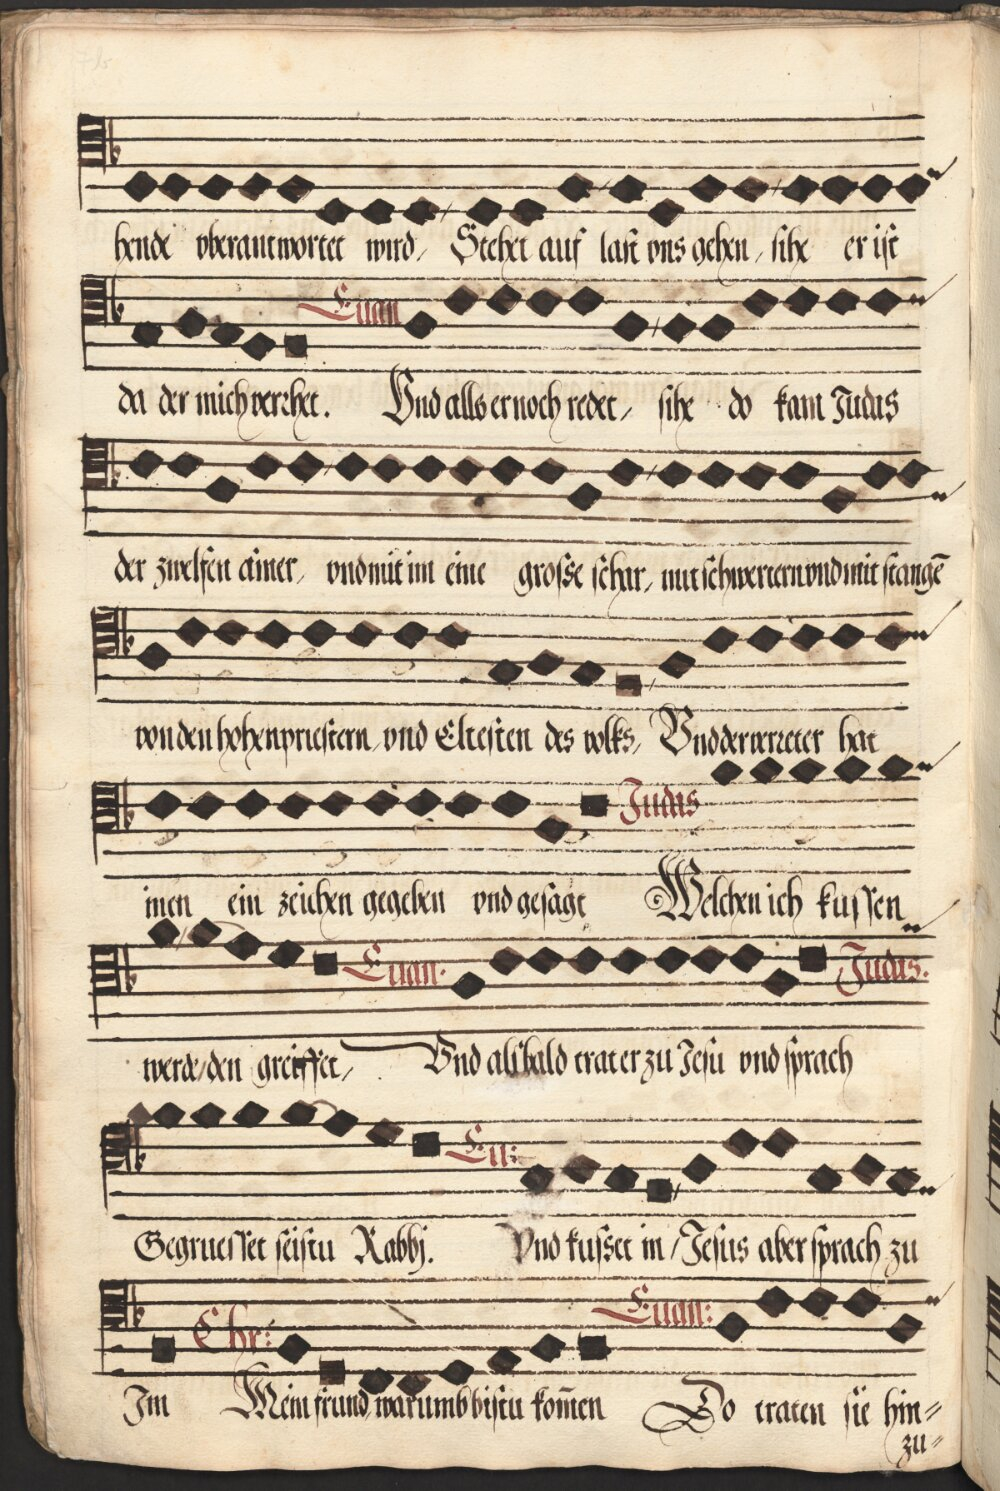 hende vberantwortet wird, Stehet auf last vns gehen, sihe er ist
Euan
da der mich verrhet. Vnd alls er noch redet, sihe do kam Judas
der zwelfen einer, vnd mit im eine grosse schar, mit schwertern vnd mit stangē
von den hohenpriestern, vnd Eltesten des volks, Vnd der verreter hat
Judas
inen ein zeichen gegeben vnd gesagt Welchen ich kussen
Euan. Judas.
werde, den greiffet, Vnd alsbald trat er zu Jesu vnd sprach
Eu:
Gegruesset seistu Rabbj. Vnd kusset in, Jesus aber sprach zu
Chr: Euan:
Im Mein frund, warumb bistu kom̄en Do traten sie hin=
zu=